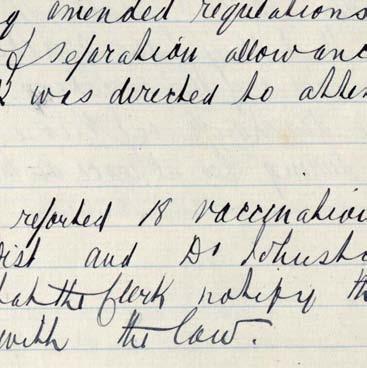 g amended regulations
of separation allowanc
was directed to atten
reported 18 vaccination
ist and Dr Johnsto
hat the Clerk notify th
with the law.